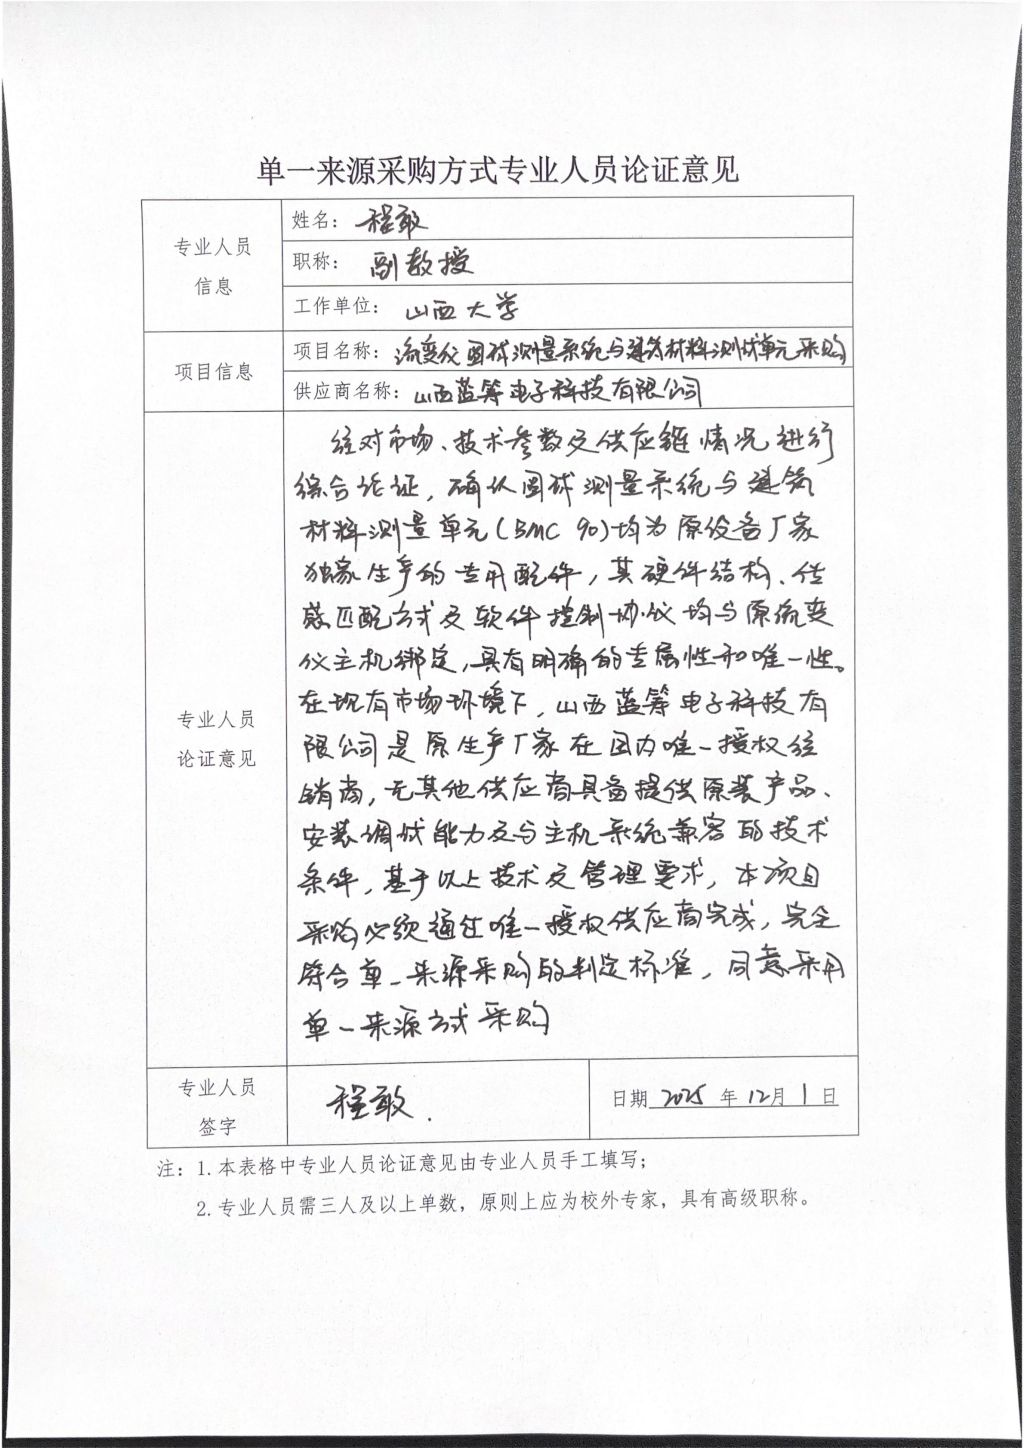 单一来源采购方式专业人员论证意见
专业人员
信息
姓名：程敢
职称：副教授
工作单位：山西大学
项目信息
项目名称：流变仪圆球测量系统与建筑材料测试单元采购
供应商名称：山西蓝筹电子科技有限公司
专业人员
论证意见
经对市场、技术参数及供应链情况进行
综合论证，确认圆球测量系统与建筑
材料测量单元(BMC 90)均为原设备厂家
独家生产的专用配件，其硬件结构、传
感匹配方式及软件控制协议均与原流变
仪主机绑定，具有明确的专属性和唯一性。
在现有市场环境下，山西蓝筹电子科技有
限公司是原生产厂家在国内唯一授权经
销商，无其他供应商具备提供原装产品、
安装调试能力及与主机系统兼容的技术
条件，基于以上技术及管理要求，本项目
采购必须通过唯一授权供应商完成，完全
符合单一来源采购的判定标准，同意采用
单一来源方式采购
专业人员
签字
程敢.
日期 2025 年 12月 1 日
注：1.本表格中专业人员论证意见由专业人员手工填写；
2.专业人员需三人及以上单数，原则上应为校外专家，具有高级职称。